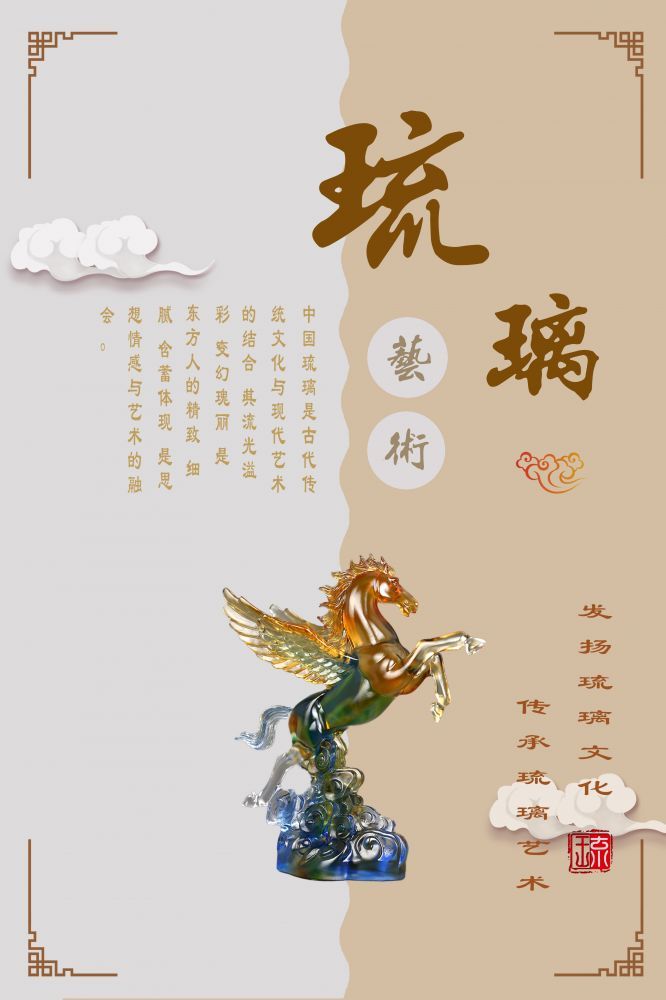 琉璃
藝術
中国琉璃是古代传
统文化与现代艺术
的结合 其流光溢
彩 变幻瑰丽 是
东方人的精致 细
腻 含蓄体现 是思
想情感与艺术的融
会。
发扬琉璃文化
传承琉璃艺术